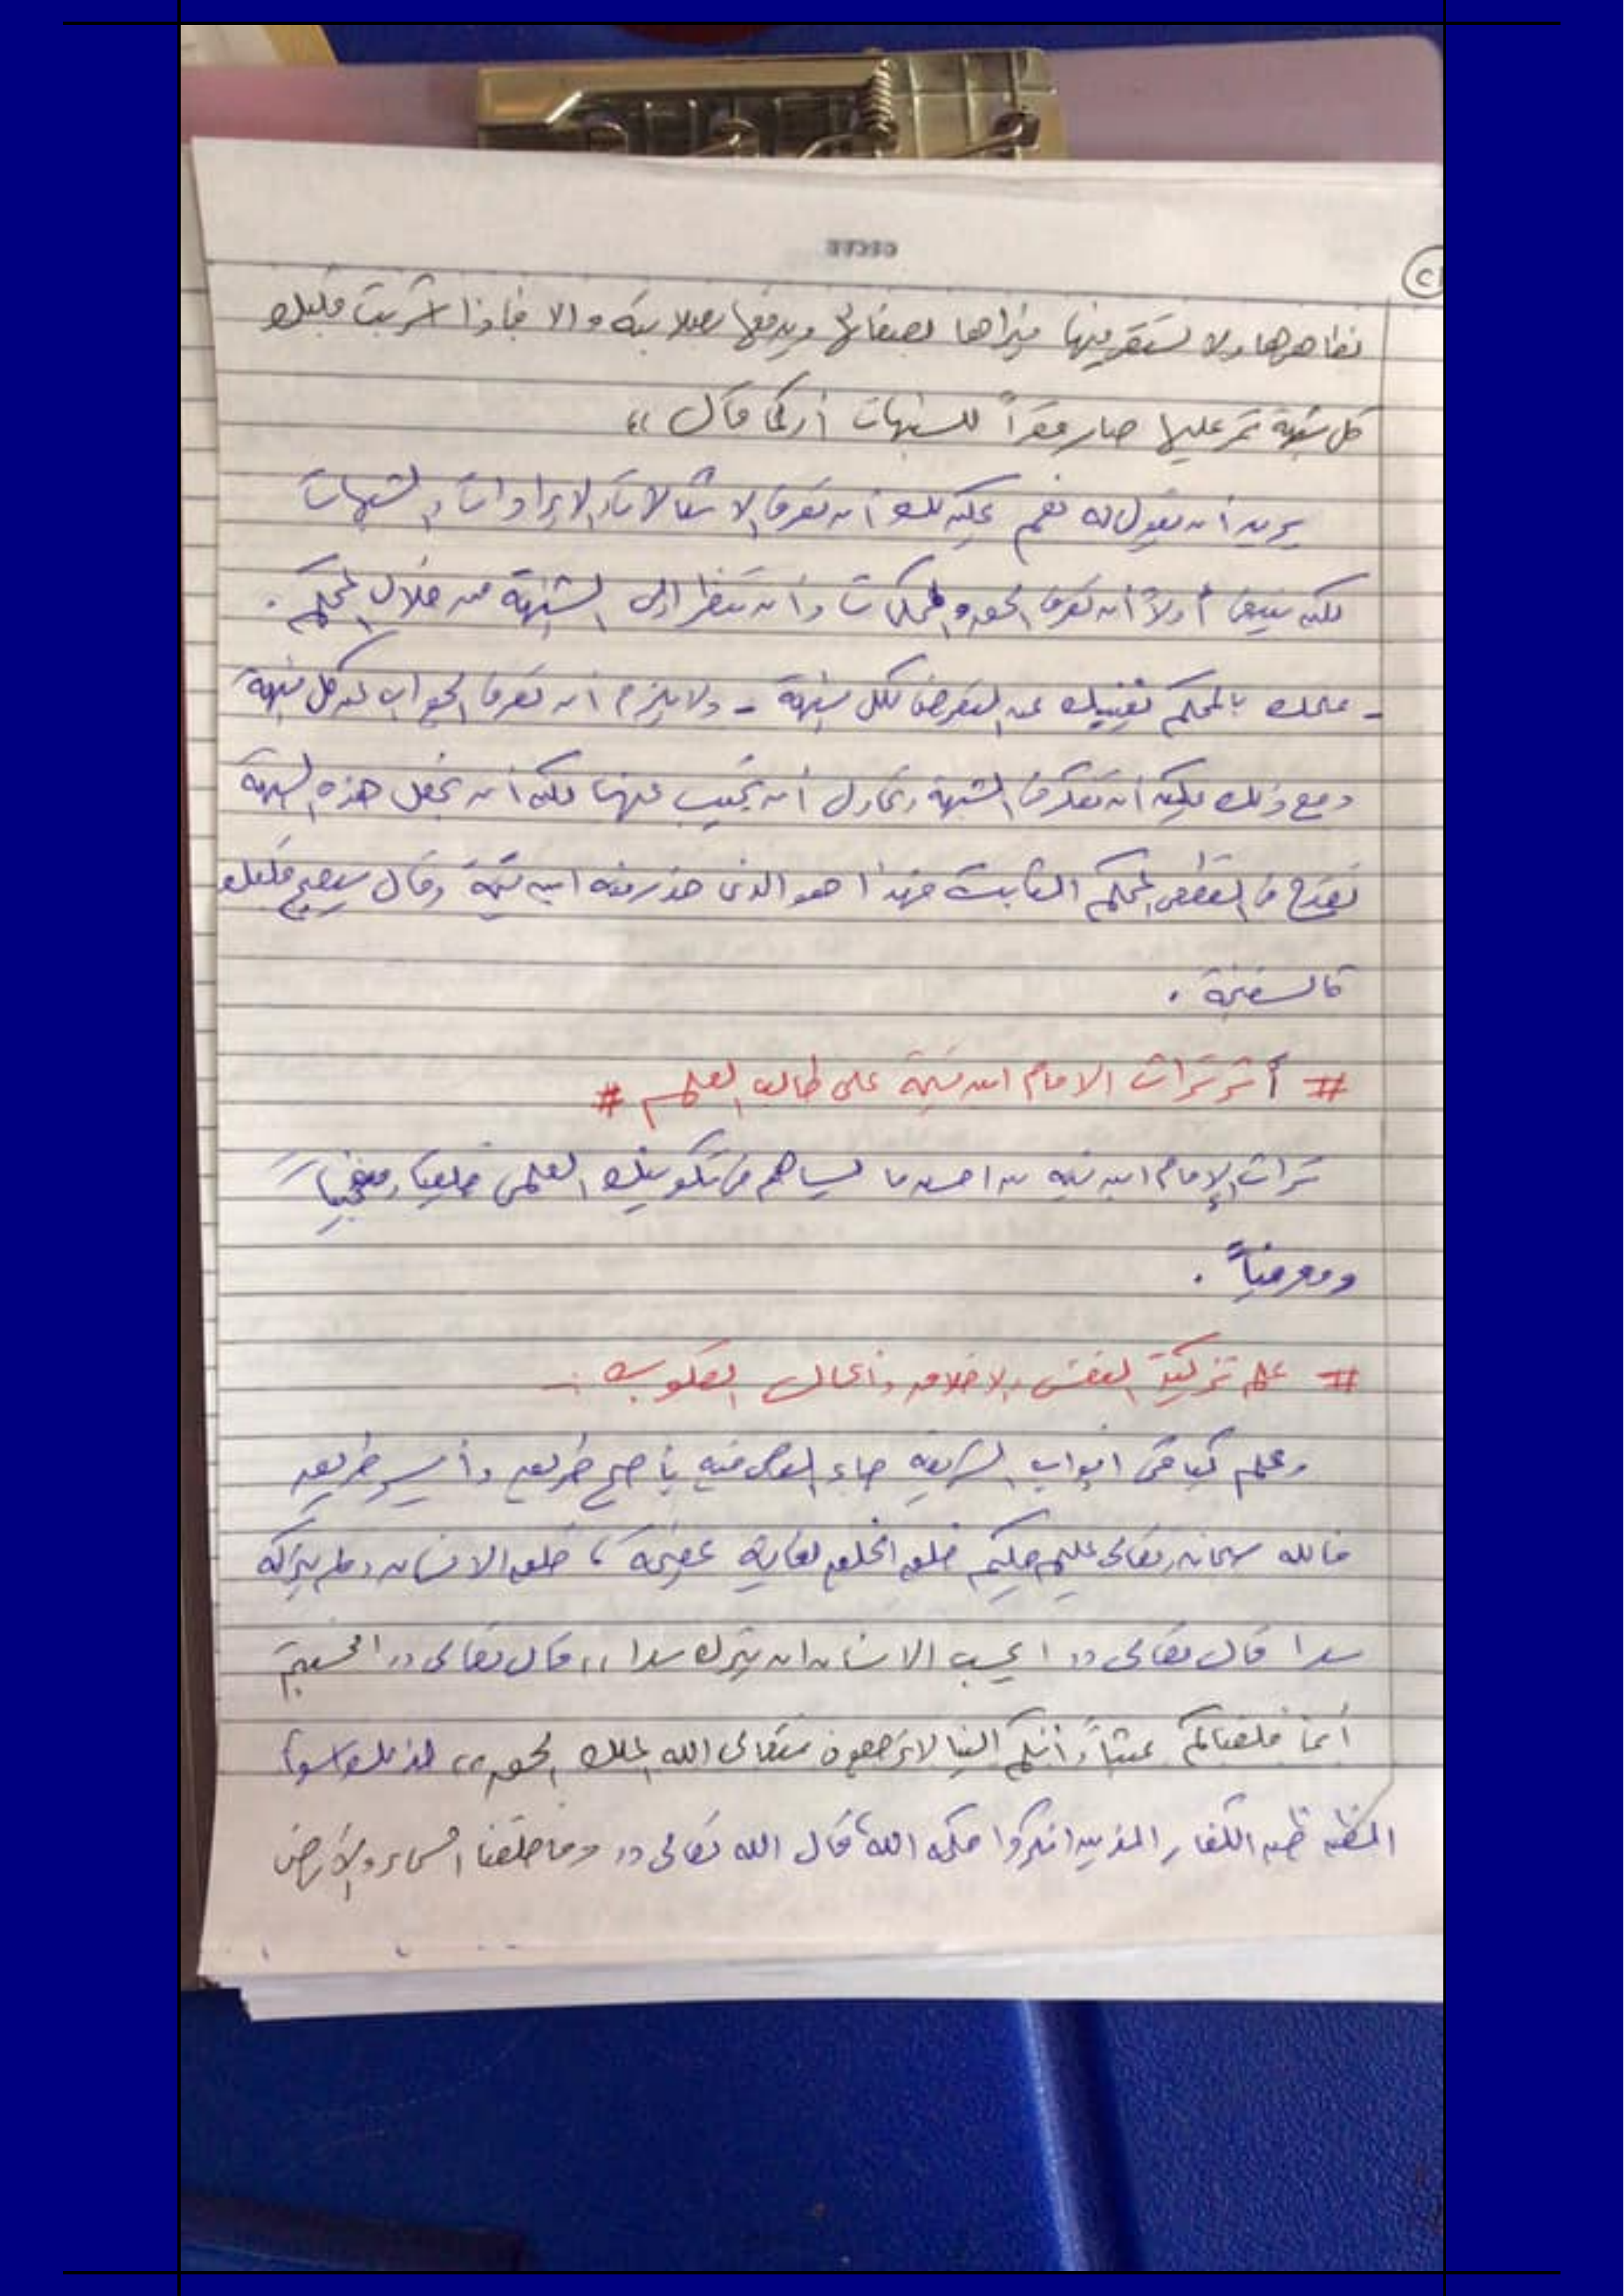 ٢١
بظاهرها ولا تستقر فيها فيراها بصفائه ويدفعها بصلابته والا فإذا اشربت قلبك
كل شبهة تمر عليها صار مقراً للشبهات أو كما قال ،،
يريد أن يقول له نعم يمكنك أن تعرف الاشكالات والايرادات والشبهات
لكن ينبغي أولاً أن تعرف الحق والمحكمات وأن تنظر إلى الشبهة من خلال المحكم .
- علمك بالمحكم يغنيك عن التعرض لكل شبهة - ولا يلزم أن تعرف الجواب عن كل شبهة
ومع ذلك يمكن أن تعرف الشبهة وتحاول أن تجيب عنها لكن أن تجعل هذه الشبهة
تقدح في القطعي المحكم الثابت فهذا هو الذي حذر منه ابن تيمية وقال سيصبح قلبك
كالسفنجة .
# أثر تراث الامام ابن تيمية على طالب العلم #
تراث الإمام ابن تيمية من احسن ما يساهم في تكوينك العلمي خلقياً ومنهجياً
ومعرفياً .
# علم تزكية النفس والاخلاق وأعمال القلوب :-
وعلم كباقي ابواب الشريعة جاء النص فيه بأصح طريق وأيسر طريق
فالله سبحانه وتعالى عليم حكيم خلق الخلق لغاية عظيمة ، خلق الانسان ولم يتركه
سدا قال تعالى ,, ايحسب الانسان ان يترك سدا ,, قال تعالى ,, افحسبتم
أنما خلقناكم عبثاً وأنكم الينا لا ترجعون فتعالى الله الملك الحق ,, لذلك اسوأ
الظن ظن الكفار الذين انكروا حكمة الله قال الله تعالى ,, وما خلقنا السماء والأرض